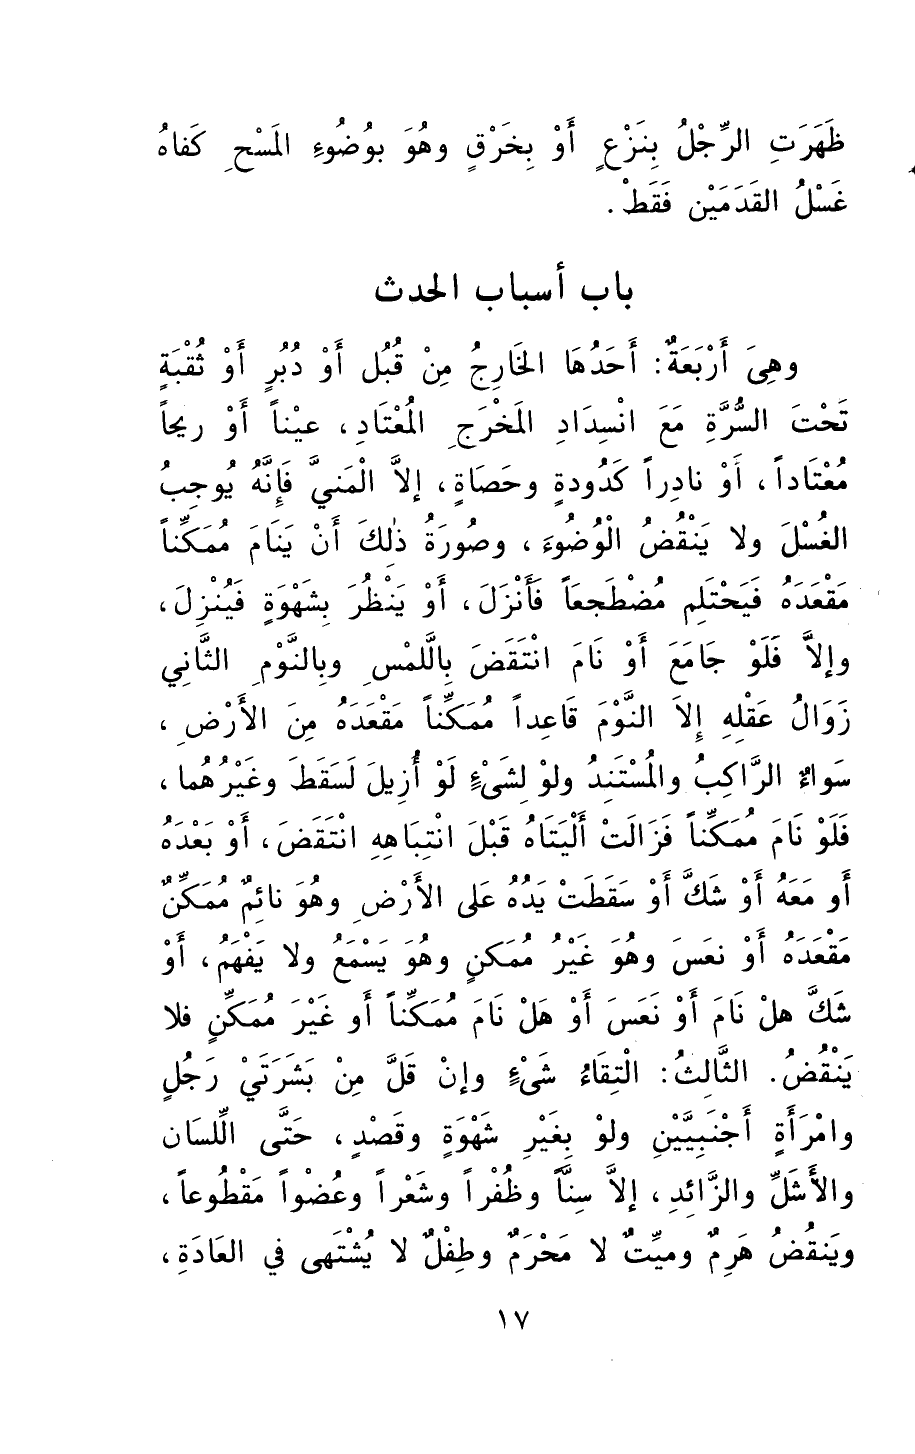 ظَهَرَتِ الرِّجْلُ بِنَزْعٍ أَوْ بِخَرْقٍ وهُوَ بوُضُوءِ المَسْحِ كَفاهُ
غَسْلُ القَدَمَيْن فَقَطْ .
باب أسباب الحدث
وهِيَ أَرْبَعَةٌ: أَحَدُهَا الخَارِجُ مِنْ قُبُل أَوْ دُبُرٍ أَوْ ثُقْبَةٍ
تَحْتَ السُّرَّةِ مَعَ انْسِدَادِ المَخْرَجِ المُعْتَادِ، عيْناً أَوْ ريحاً
مُعْتَاداً، أَوْ نادِراً كَدُودةٍ وحَصَاةٍ، إلاَّ الْمَنيَّ فَإِنَّهُ يُوجِبُ
الغُسْلَ ولا يَنْقُضُ الْوُضُوءَ، وصُورَةُ ذٰلِكَ أَنْ يَنَامَ مُمَكِّناً
مَقْعَدَهُ فَيَحْتَلِم مُضْطَجعَاً فَأَنْزَلَ، أَوْ يَنْظُرَ بِشَهْوَةٍ فَيُنْزِلَ،
وإلاَّ فَلَوْ جَامَعَ أَوْ نَامَ انْتَقَضَ بِاللَّمْسِ وبِالنَّوْمِ الثَّانِي
زَوَالُ عَقْلِهِ إِلاَ النَّوْمَ قَاعِداً مُمَكِّناً مَقْعَدَهُ مِنَ الأَرْضِ،
سَواءٌ الرَّاكِبُ والمُسْتَنِدُ ولوْ لِشَىْءٍ لَوْ أُزِيلَ لَسَقَطَ وغَيْرُهُما،
فَلَوْ نَامَ مُمَكِّناً فَزَالَتْ أَلْيَتَاهُ قَبْلَ انْتِبَاهِهِ انْتَقَضَ، أَوْ بَعْدَهُ
أَو مَعَهُ أَوْ شَكَّ أَوْ سَقَطَتْ يَدُهُ عَلى الأَرْضِ وهُوَ نائِمٌ مُمَكِّنٌ
مَقْعَدَه أَوْ نعَسَ وهُوَ غَيْرُ مُمَكنٍ وهُوَ يَسْمَعُ ولا يَفْهَمُ، أَوْ
شَكَّ هلْ نَامَ أَوْ نَعَسَ أَوْ هَلْ نَامَ مُمَكِّناً أَو غَيْرَ مُمَكِّنٍ فلا
يَنْقُضُ. الثَّالِثُ: الْتِقَاءُ شَىْءٍ وإنْ قَلَّ مِنْ بَشَرَتَيْ رَجُلٍ
وامْرَأَةٍ أَجْنَبِيَّيْنِ ولوْ بِغَيْرِ شَهْوَةٍ وقَصْدٍ، حَتَّى اللِّسَان
والأَشَلِّ والزَّائِدِ، إلاَّ سِنّاً وظُفْراً وشَعْراً وعُضْواً مَقْطُوعاً،
ويَنقُضُ هَرِمٌ وميِّتٌ لا مَحْرَمٌ وطِفْلٌ لا يُشْتَهى في العَادَةِ،
١٧